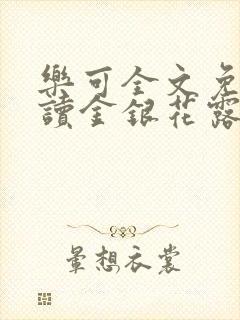 樂可全文免
讀金銀花露
暈想衣裳